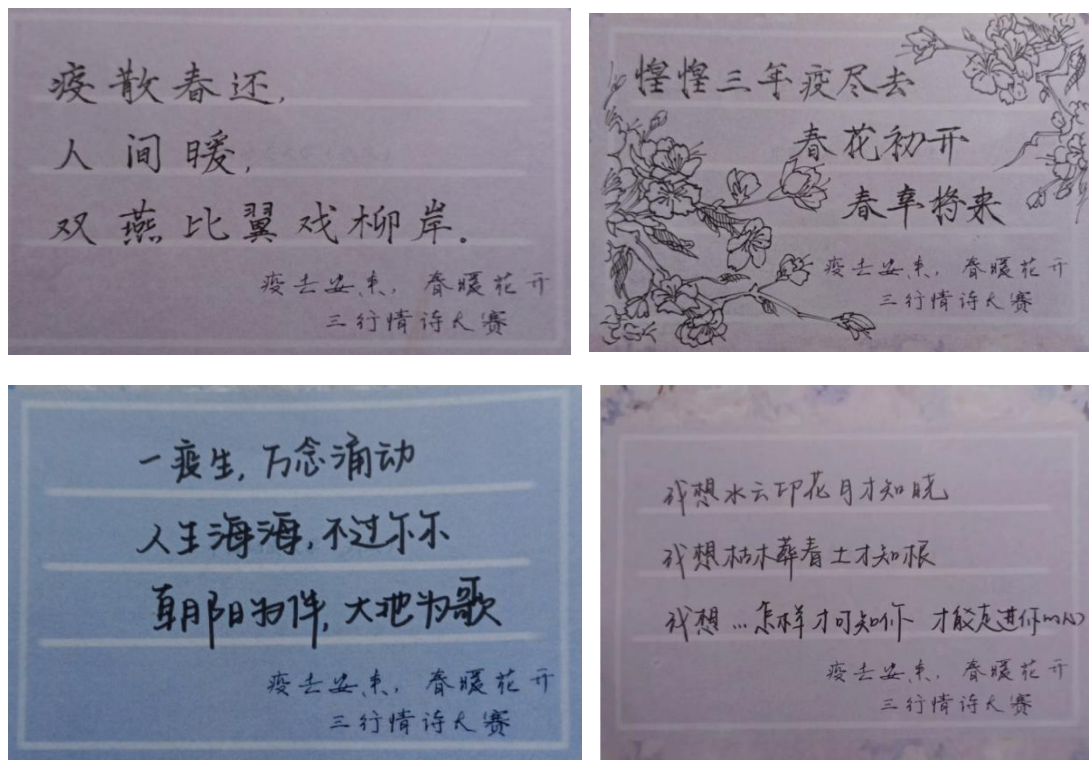 疫散春还,
人间暖,
双燕比翼戏柳岸。
疫去安来, 春暖花开
三行情诗大赛
惶惶三年疫尽去
春花初开
春幸将来
疫去安来, 春暖花开
三行情诗大赛
一疫生, 万念涌动
人生海海, 不过尔尔
朝阳为伴, 大地为歌
疫去安来, 春暖花开
三行情诗大赛
我想水云印花月才知晓
我想枯木葬春土才知根
我想…怎样才可知你 才能走进你的心
疫去安来, 春暖花开
三行情诗大赛